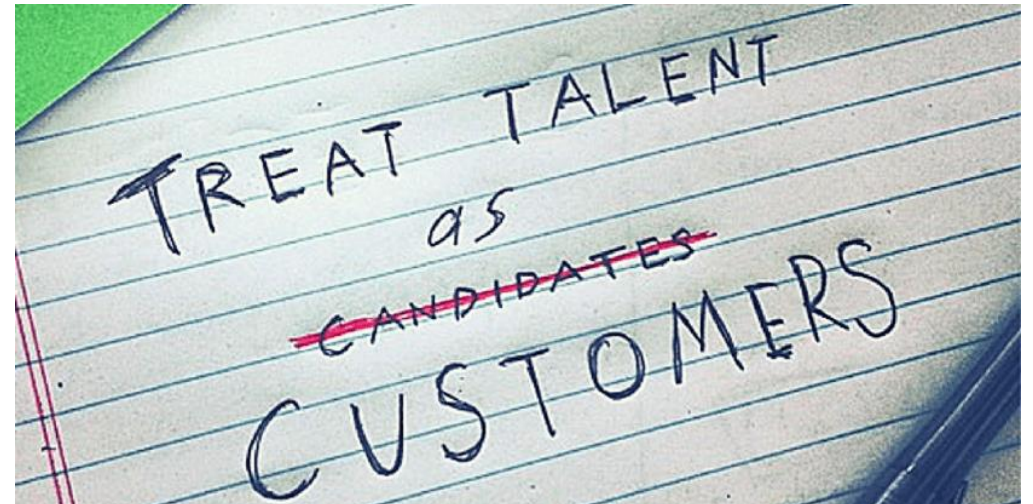 TREAT TALENT
as
CANDIDATES
CUSTOMERS